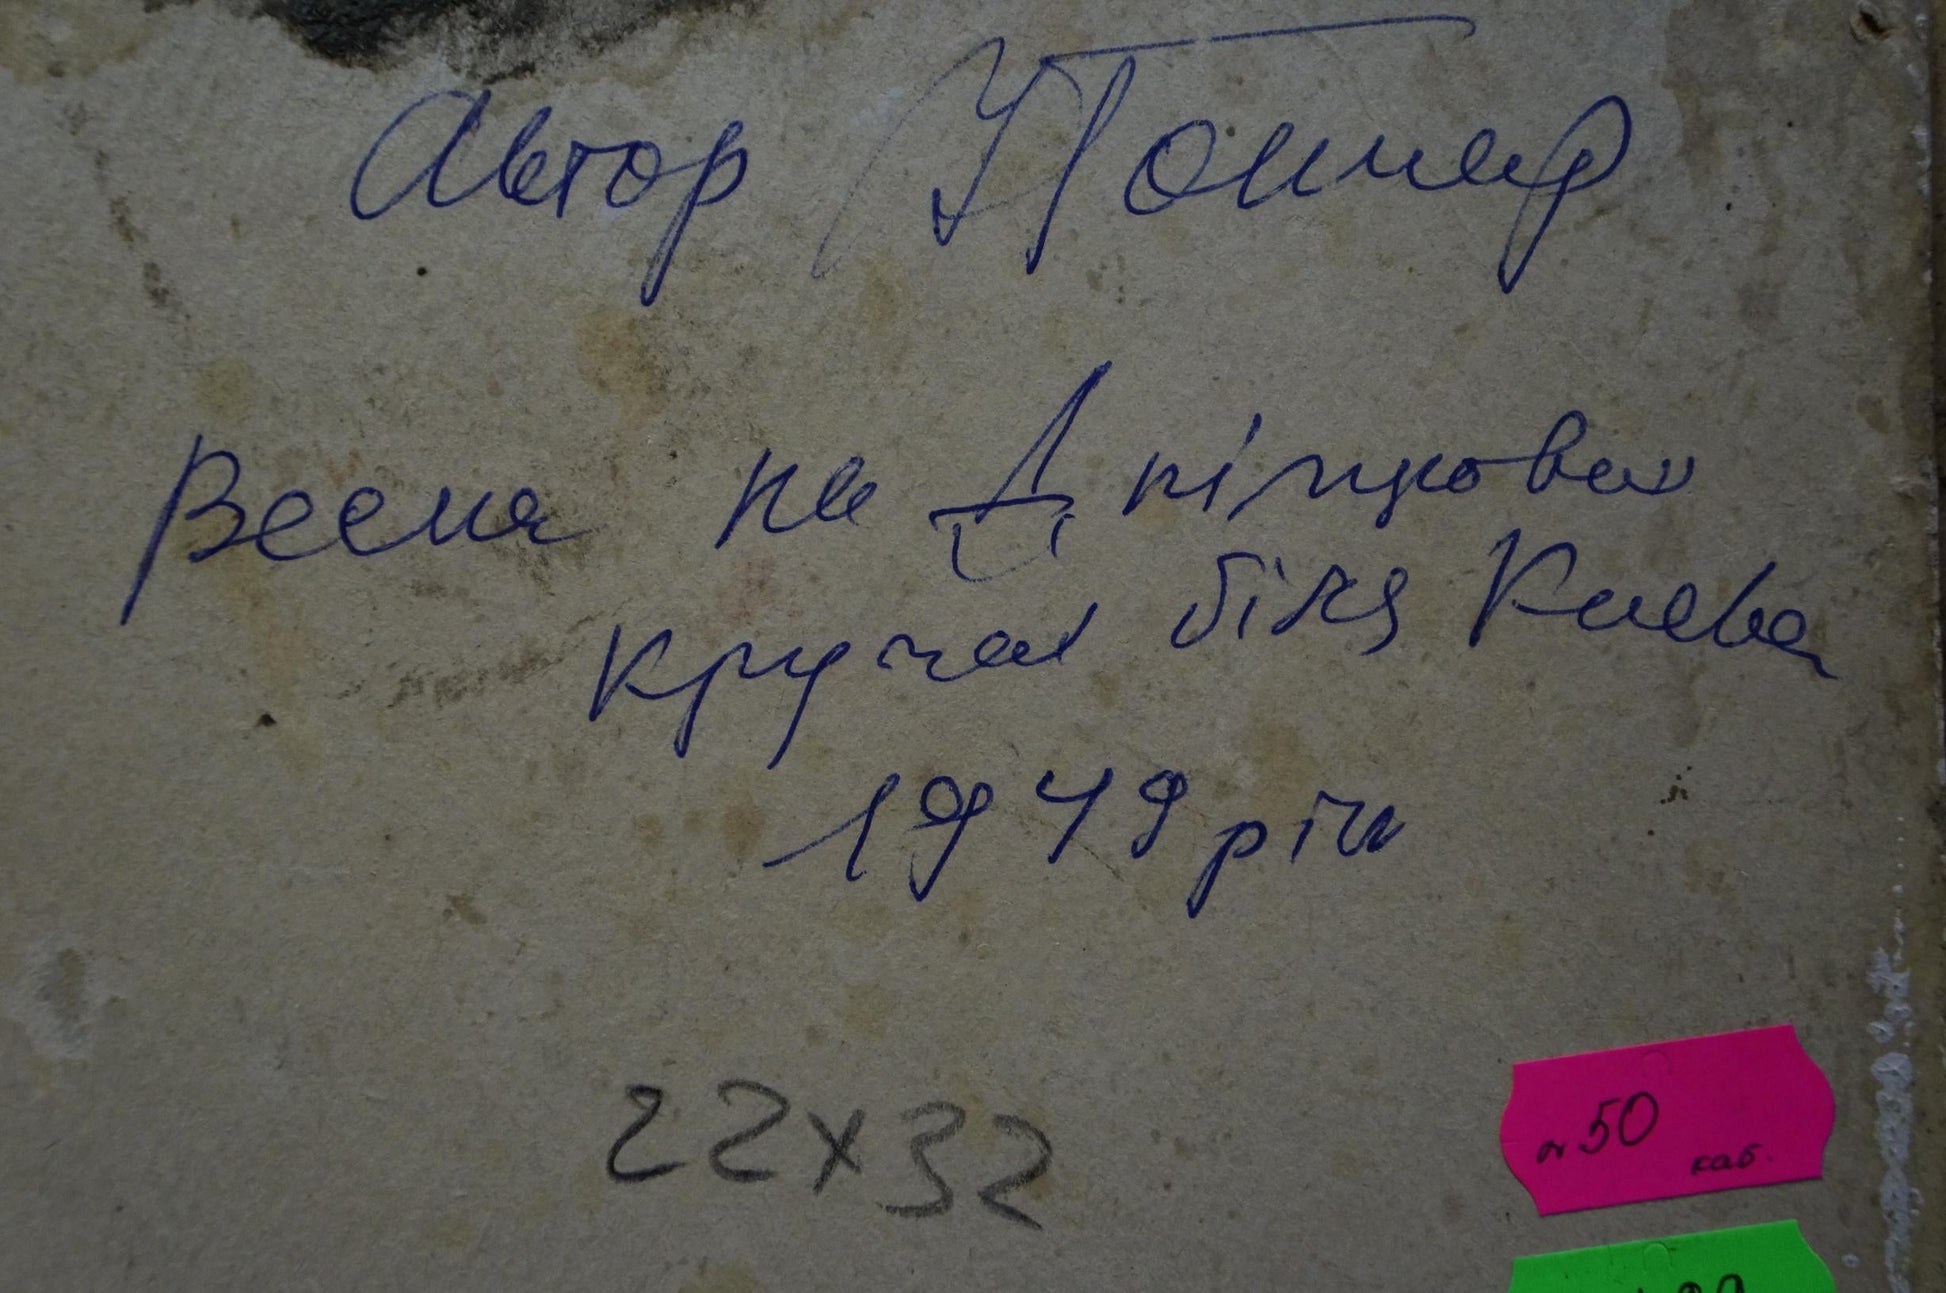 Автор
Весна на Дніпрових
кручах біля Києва
1949 рік
22х32
~50
каб.